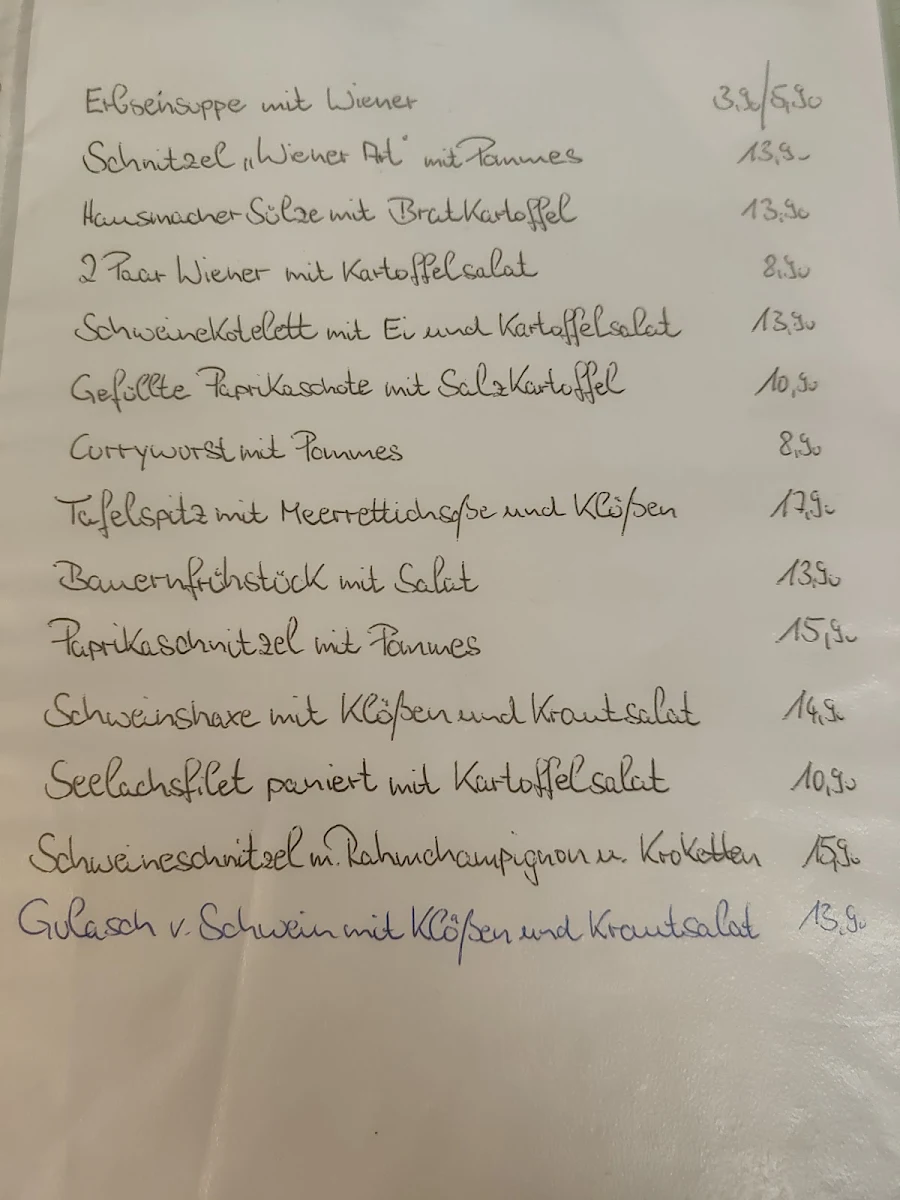 Erbsensuppe mit Wiener 3,90/5,90
Schnitzel „Wiener Art" mit Pommes 13,90
Hausmacher Sülze mit Bratkartoffel 13,90
2 Paar Wiener mit Kartoffelsalat 8,90
Schweinekotelett mit Ei und Kartoffelsalat 13,90
Gefüllte Paprikaschote mit Salzkartoffel 10,90
Currywurst mit Pommes 8,90
Tafelspitz mit Meerrettichsoße und Klößen 17,90
Bauernfrühstück mit Salat 13,90
Paprikaschnitzel mit Pommes 15,90
Schweinshaxe mit Klößen und Krautsalat 14,90
Seelachsfilet paniert mit Kartoffelsalat 10,90
Schweineschnitzel m. Rahmchampignon u. Kroketten 15,90
Gulasch v. Schwein mit Klößen und Krautsalat 13,90